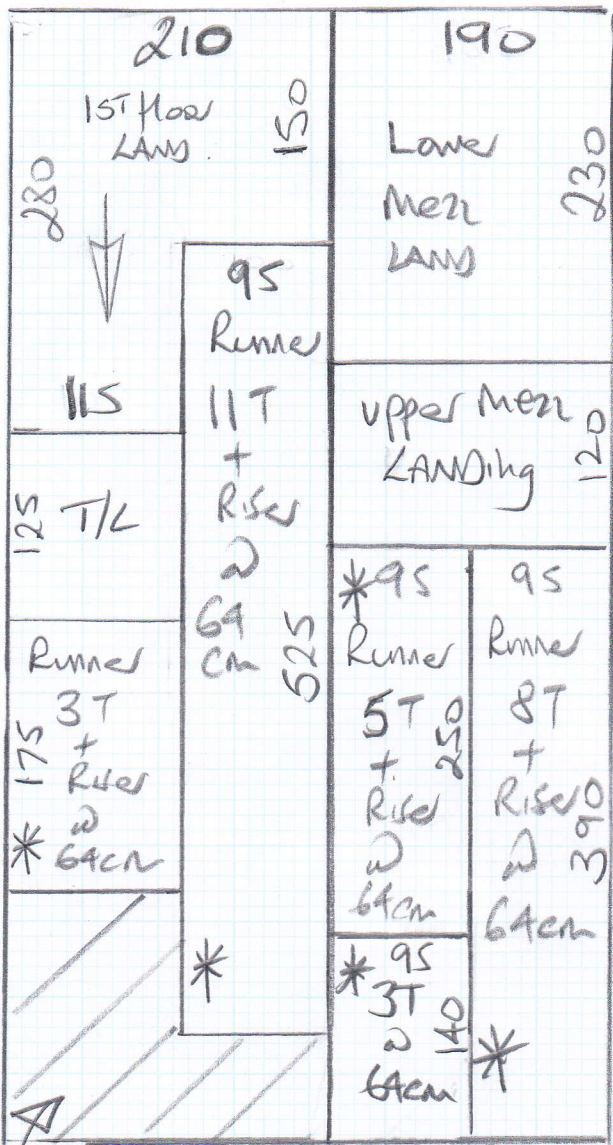 210
1ST floor
LAND.
150
280
115
125 T/L
Runner
3T
+
Riser
@
64cm
175
*
95
Runner
11T
+
Riser
@
64
cm
525
*
190
Lower
Mezz
LAND
230
upper Mezz
LANDing
120
* 95
Runner
5T
+
Riser
@
64cm
250
* 95
3T
@
64cm
140
95
Runner
8T
+
Riser
@
64cm
390
*